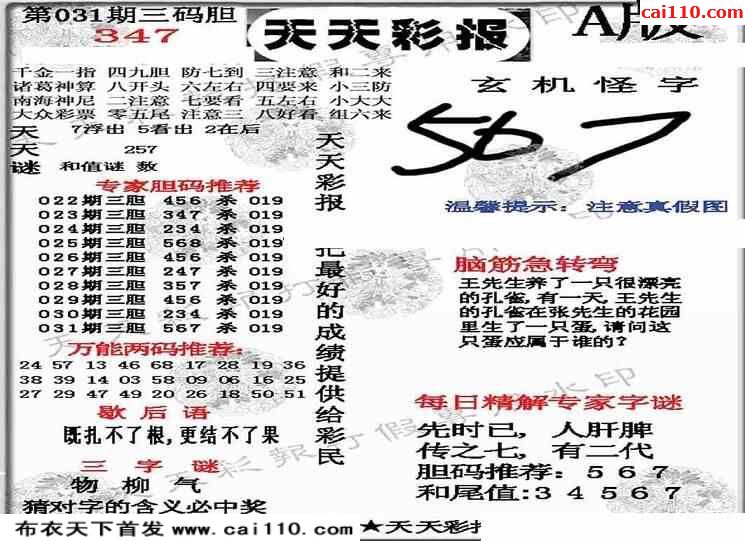 第031期三码胆
347
天天彩报
A版
cai110.com
千金一指 四九胆 防七到 三注意 和二来
诸葛神算 八开头 六左右 四要来 小三防
南海神尼 二注意 七要看 五左右 小大大
大众彩票 零五尾 注意三 八好看 组六来
天 7浮出 5看出 2在后
天 257
谜 和值谜 数
专家胆码推荐
022期三胆 456 杀 019
023期三胆 347 杀 019
024期三胆 234 杀 019
025期三胆 568 杀 019
026期三胆 456 杀 019
027期三胆 247 杀 019
028期三胆 357 杀 019
029期三胆 456 杀 019
030期三胆 234 杀 019
031期三胆 567 杀 019
万能两码推荐:
24 57 13 46 68 17 28 19 36
38 39 14 03 58 09 06 16 25
27 29 47 49 20 26 18 50 51
歇后语
既扎不了根,更结不了果
三字谜
物 柳 气
猜对字的含义必中奖
天天彩报
汇最好的成绩提供给彩民
玄机怪字
567
温馨提示: 注意真假图
脑筋急转弯
王先生养了一只很漂亮
的孔雀,有一天,王先生
的孔雀在张先生的花园
里生了一只蛋,请问这
只蛋应属于谁的?
每日精解专家字谜
先时已, 人肝脾
传之七, 有二代
胆码推荐: 5 6 7
和尾值:3 4 5 6 7
布衣天下首发 www.cai110.com
★天天彩报